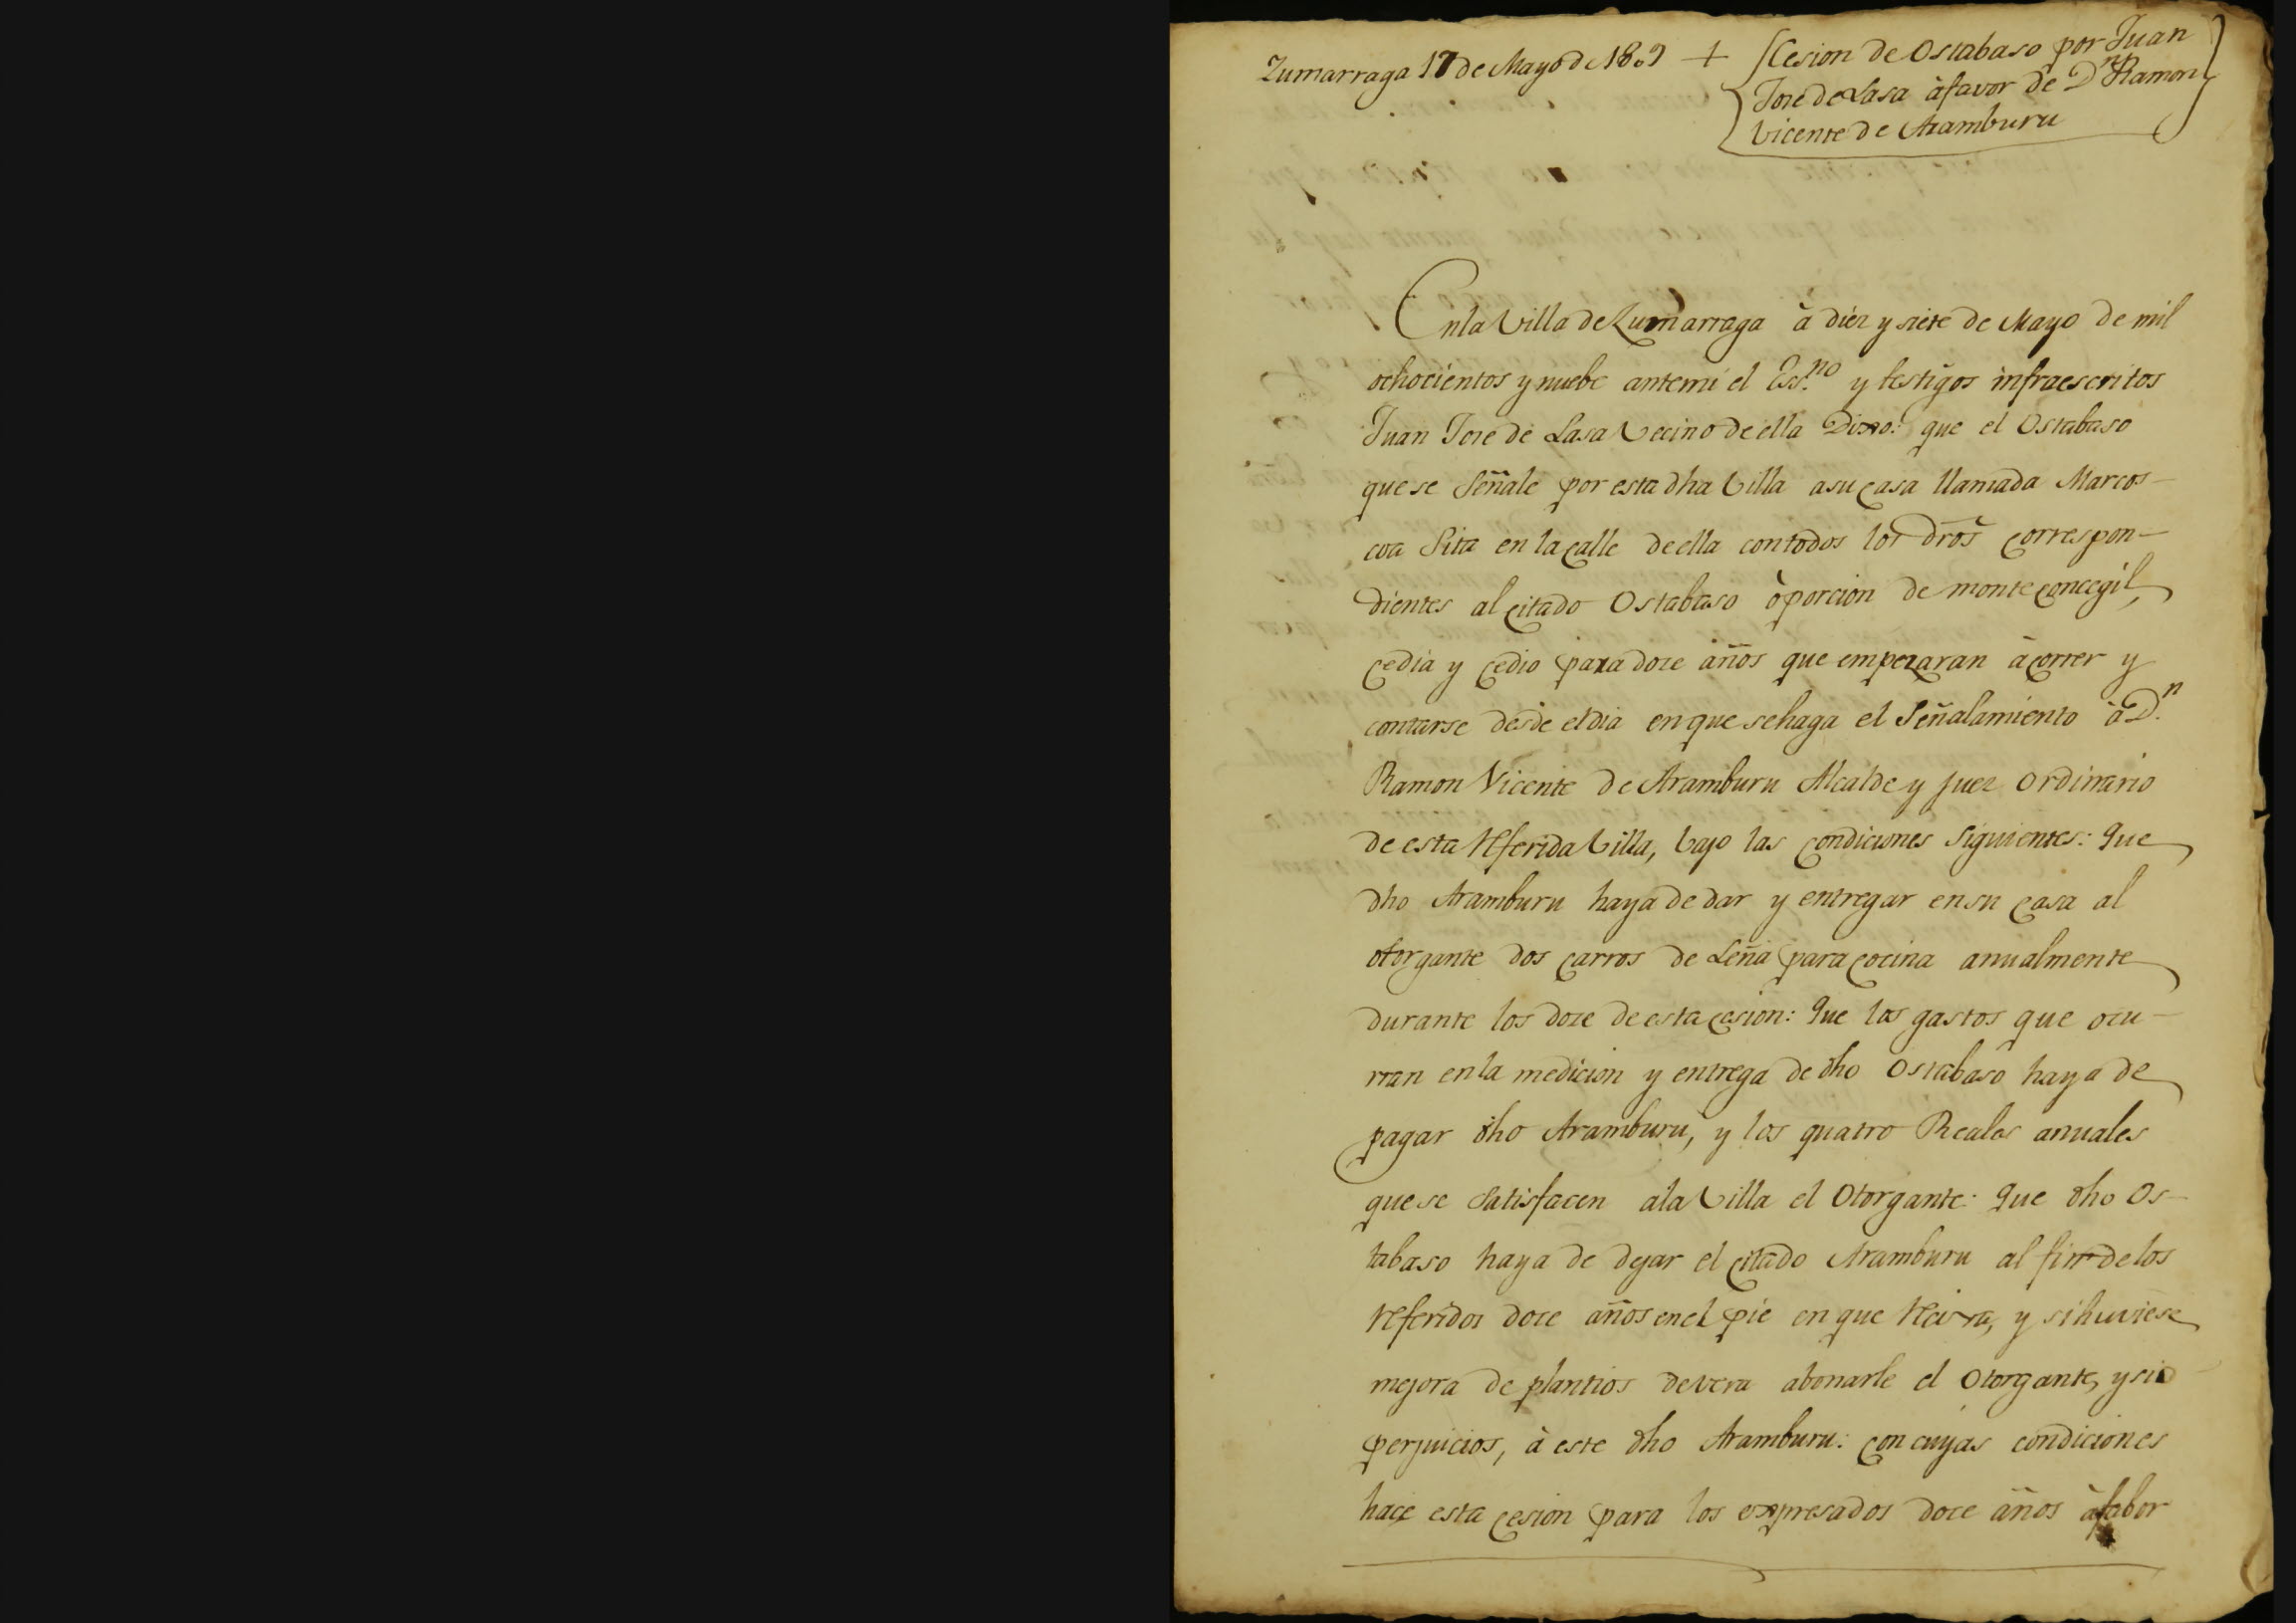 Zumarraga 17 de Mayo de 1809 + Cesion de Ostabaso por Juan
Jose de Lasa à favor de Dn Ramon
Vicente de Aramburu
En la Villa de Zumarraga à diez y siete de Mayo de mil
ochocientos y nuebe ante mi el Ess.no y testigos infraescritos
Juan Jose de Lasa Vecino de ella Dixo: que el Ostabaso
que se Señale por esta dha Villa a su casa llamada Marcos-
coa Sita en la calle de ella con todos los dros correspon-
dientes al citado Ostabaso ò porcion de monte concegil,
cedia y cedio para doze años que empezaran à correr y
contarse desde el dia en que se haga el Señalamiento à D.n
Ramon Vicente de Aramburu Alcalde y Juez ordinario
de esta referida Villa, bajo las condiciones siguientes: Que
dho Aramburu haya de dar y entregar en su casa al
otorgante dos carros de Leña para cocina anualmente
durante los doze de esta cesion: Que los gastos que ocu-
rran en la medicion y entrega de dho Ostabaso haya de
pagar dho Aramburu, y los quatro Reales anuales
que se Satisfacen a la Villa el Otorgante: Que dho Os-
tabaso haya de dejar el citado Aramburu al fin de los
referidos doze años en el pie en que reciva, y si huviese
mejora de plantios devera abonarle el Otorgante, y si
perjuicios, à este dho Aramburu: con cuyas condiciones
hace esta cesion para los expresados doze años à fabor